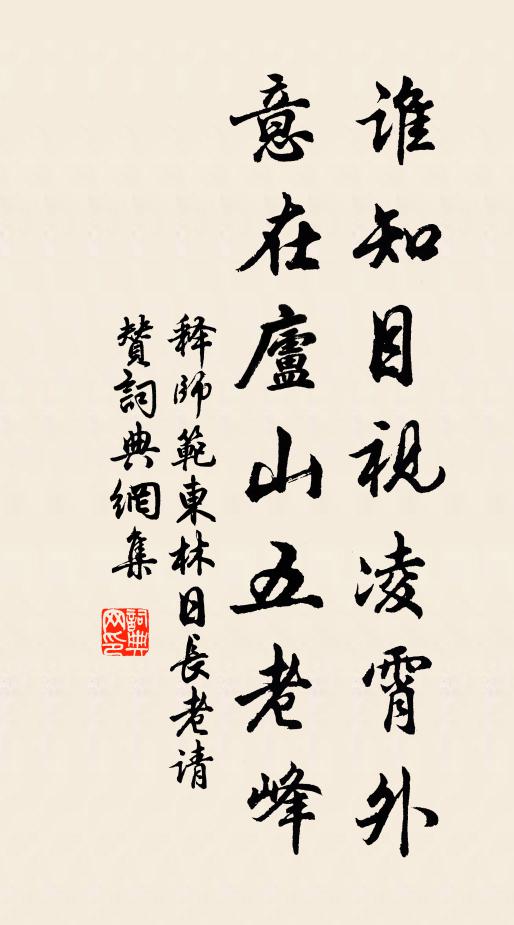 誰知目視凌霄外
意在廬山五老峰
释師範東林日長老请
赞詞典網集
詞典網印